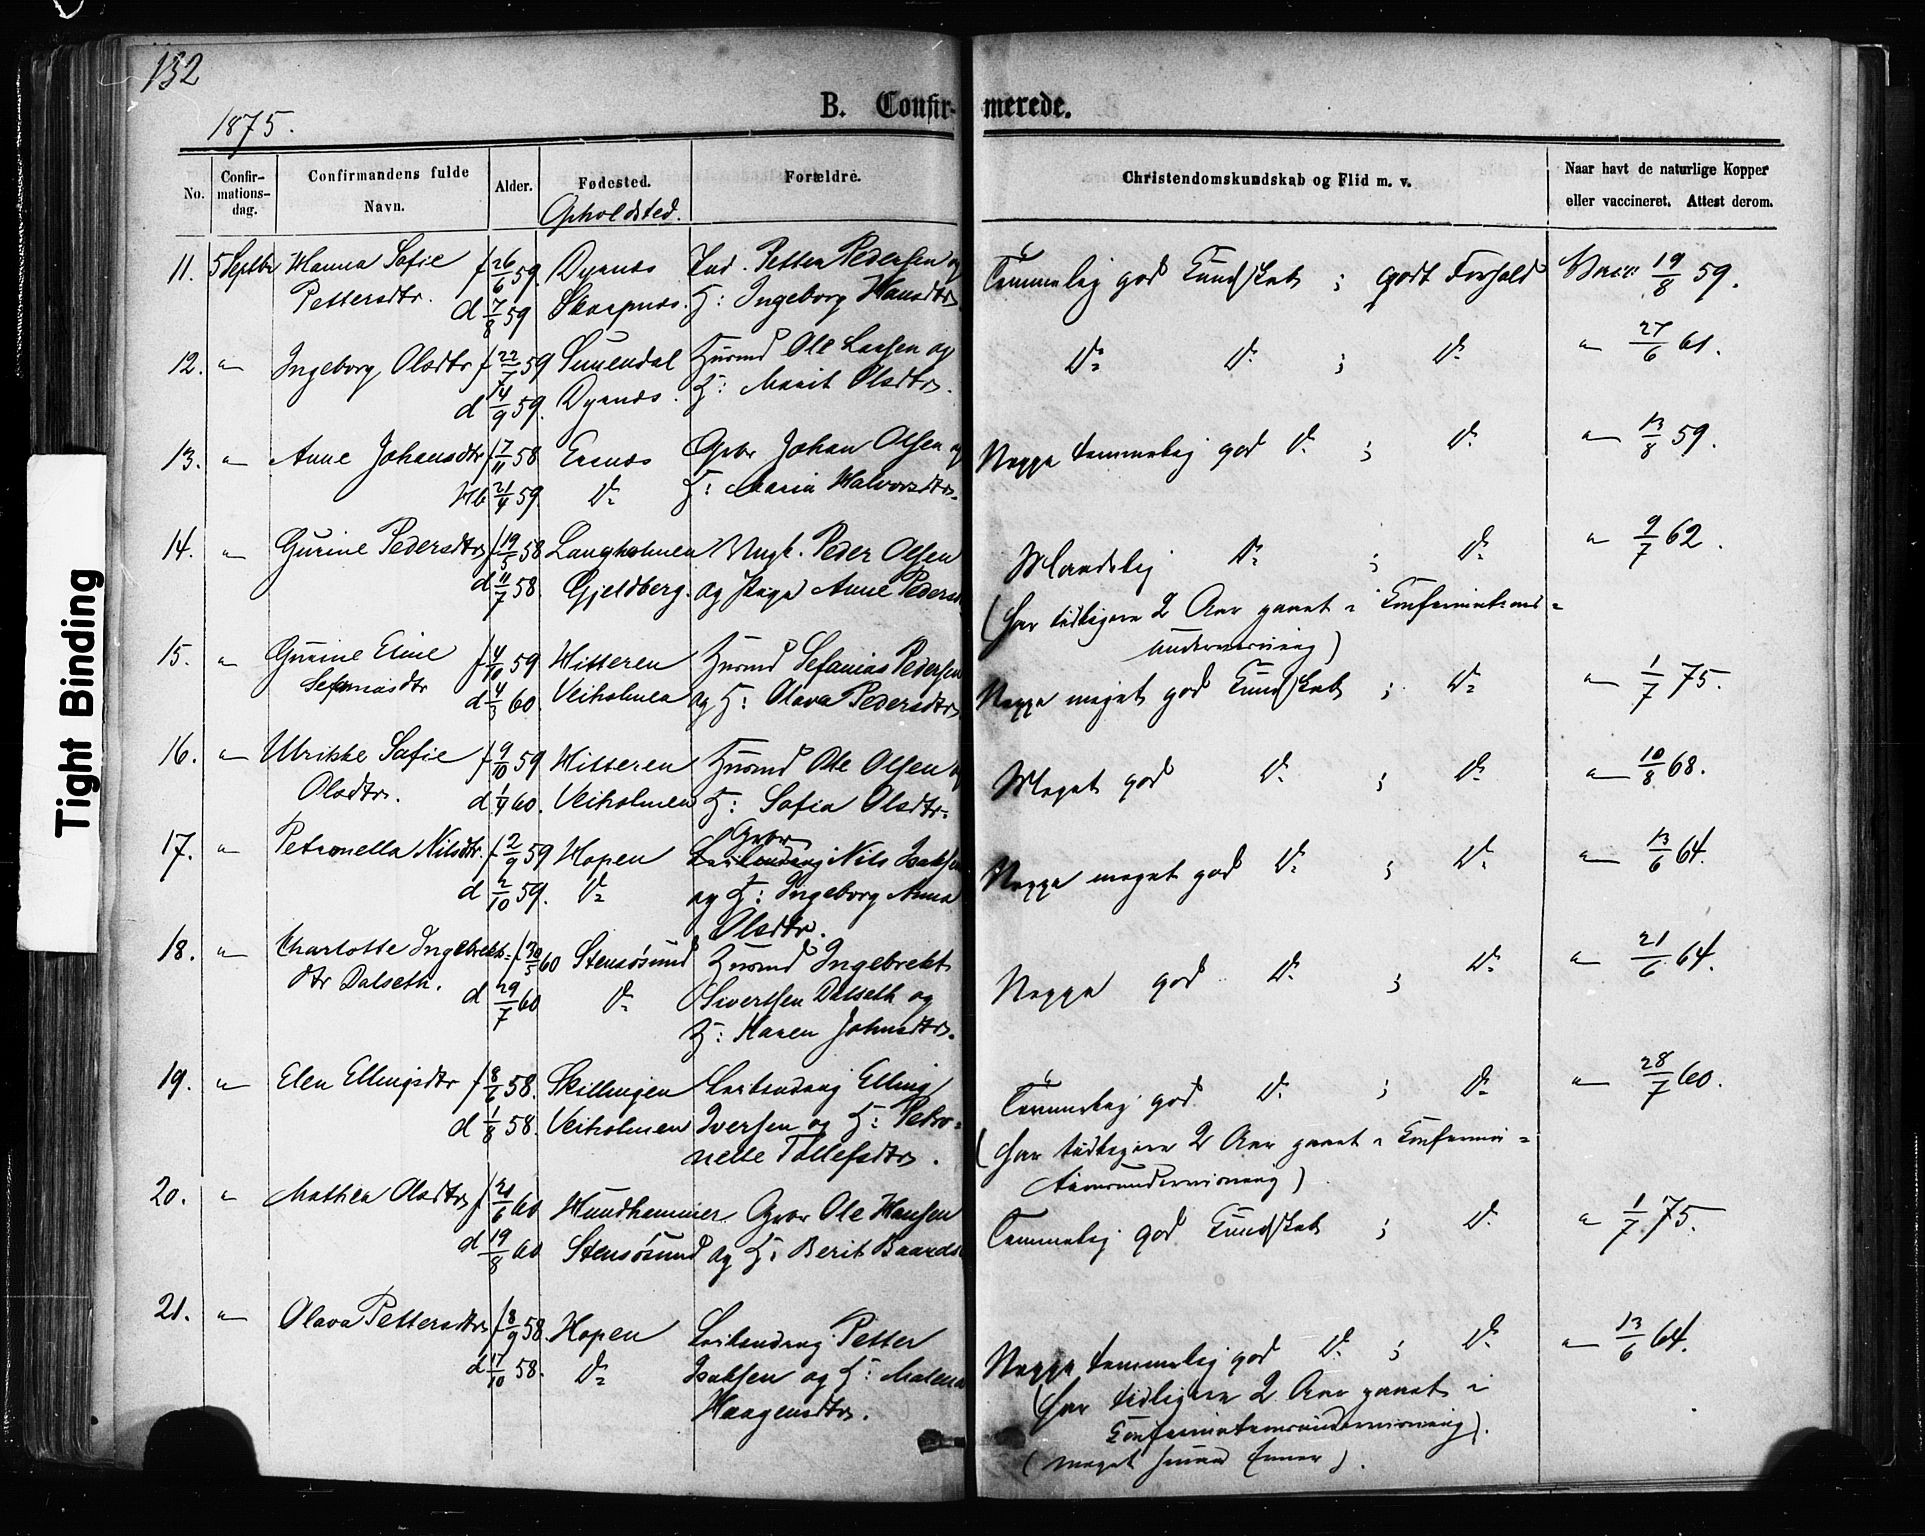 132
1875.
B. Confir- merede.
No. Confir-mations-dag. Confirmandens fulde Navn. Alder. Fødested. Opholdsted. Forældre. Christendomskundskab og Flid m. v. Naar havt de naturlige Kopper eller vaccineret. Attest derom.
11. 5 Septbr Hanna Sofie f 26/6 59. Dyrnæs Ind. Petter Pedersen og Temmelig god Kundskab ; godt Forhold Vacc 19/8 59.
Pettersdtr. d 7/8 59 Skarpnæs. H: Ingeborg Hansdtr
12. " Ingeborg Olsdtr f 22/7 59 Husmd Ole Larsen og Do Do ; Do " 27/6 61.
d 14/9 59. Dyrnæs. H: Marit Olsdtr.
13. " Anne Johansdtr f 17/11 58 Ernæs Gbr Johan Olsen og Neppe temmelig god Do ; Do " 13/8 59.
Hb 21/4 59. Do H: Maria Halvorsdtr.
14. " Gurine Pedersdtr f 19/5 58 Langholmen Ungk. Peder Olsen Maadelig Do ; Do " 9/7 62.
d 11/7 58. Gjeldberg. og Pige Anne Peders
(har tidligere 2 Aar gaaet i Konfirmations=
undervisning)
15. " Gurine Eline f 4/10 59 Hitteren Husmd Sefanias Pedersen Neppe meget god Kundskab ; Do " 1/7 75.
Sefaniasdtr d 4/3 60 Veiholmen og H: Olava Pedersdtr
16. " Ulrikke Sofie f 9/10 59 Hitteren Husmd Ole Olsen og Meget god Do ; Do " 10/8 68.
Olsdtr. d 1/4 60. Veiholmen H: Sofia Olsdtr.
Gbr
17. " Petronella Nilsdtr. f 2/9 59 Hopen Nils Isaksen Neppe meget god Do ; Do " 13/6 64.
d 2/10 59. Do og H: Ingeborg Anna
Olsdtr.
18. " Charlotte Ingebrekts= f 30/5 60 Stensøsund Husmd Ingebrekt Neppe god Do ; Do " 21/6 64.
dtr Dalseth. d 29/7 60 Do Sivertsen Dalseth og
H: Maren Johnsdtr.
19. " Elen Ellingsdtr f 8/6 58. Skillingen Leilending Elling Temmelig god Do ; Do " 28/7 60.
d 1/8 58. Veiholmen Iversen og H: Petro=
nelle Tollefsdtr.
(har tidligere 2 Aar gaaet i Konfirma=
tionsundervisning)
20. " Mathea Olsdtr f 21/6 60 Hundhammer Gbr Ole Hansen Temmelig god Kundskab ; Do " 1/7 75.
d 19/8 60 Stensøsund og H: Berit Baards
21. " Olava Pettersdtr f 8/9 58. Hopen Leilending Petter Neppe temmelig god Do ; Do " 13/6 64.
d 17/10 58. Do Isaksen og H: Malena
Haagensdtr.
(har tidligere 2 Aar gaaet i
Konfirmationsundervisning).
(meget smaa Evner).
Tight Binding